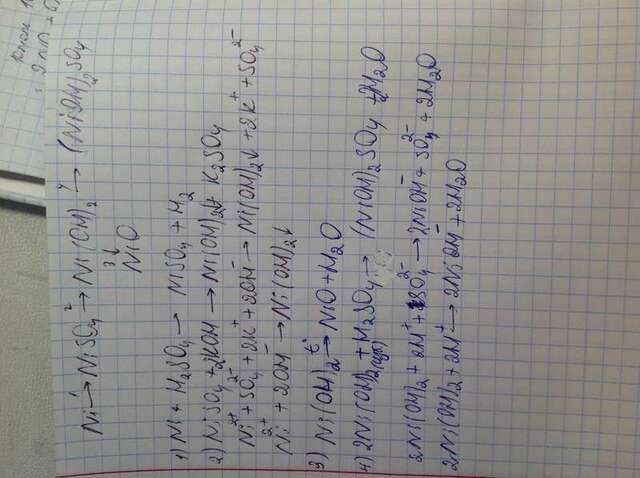 Ni →¹ NiSO₄ →² Ni(OH)₂ →⁴ (NiOH)₂SO₄
3↓
NiO
1) Ni + H₂SO₄ → NiSO₄ + H₂
2) NiSO₄ + 2KOH → Ni(OH)₂↓ + K₂SO₄
Ni²⁺ + SO₄²⁻ + 2K⁺ + 2OH⁻ → Ni(OH)₂↓ + 2K⁺ + SO₄²⁻
Ni²⁺ + 2OH⁻ → Ni(OH)₂↓
3) Ni(OH)₂ →t° NiO + H₂O
4) 2Ni(OH)₂ + H₂SO₄ → (NiOH)₂SO₄ + 2H₂O
2Ni(OH)₂ + 2H⁺ + SO₄²⁻ → 2NiOH⁻ + SO₄²⁻ + 2H₂O
2Ni(OH)₂ + 2H⁺ → 2NiOH⁻ + 2H₂O